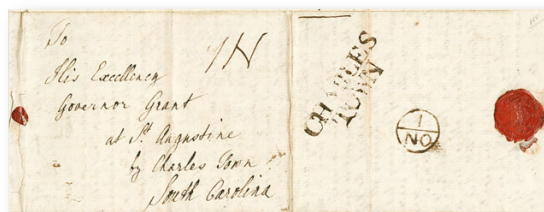 To
His Excellency
Governor Grant
at St. Augustine
by Charles Town
South Carolina
1N
CHARLES
TOWN
1
NO